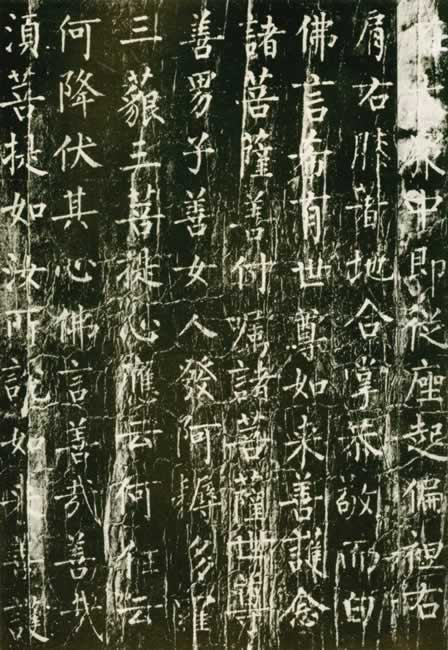 中即從座起偏袒右
肩右膝著地合掌恭敬而白
佛言希有世尊如来善護念
諸菩薩善付嘱諸菩薩世尊
善男子善女人發阿耨多羅
三藐三菩提心應云何住云
何降伏其心佛言善哉善哉
須菩提如汝所說如来善護